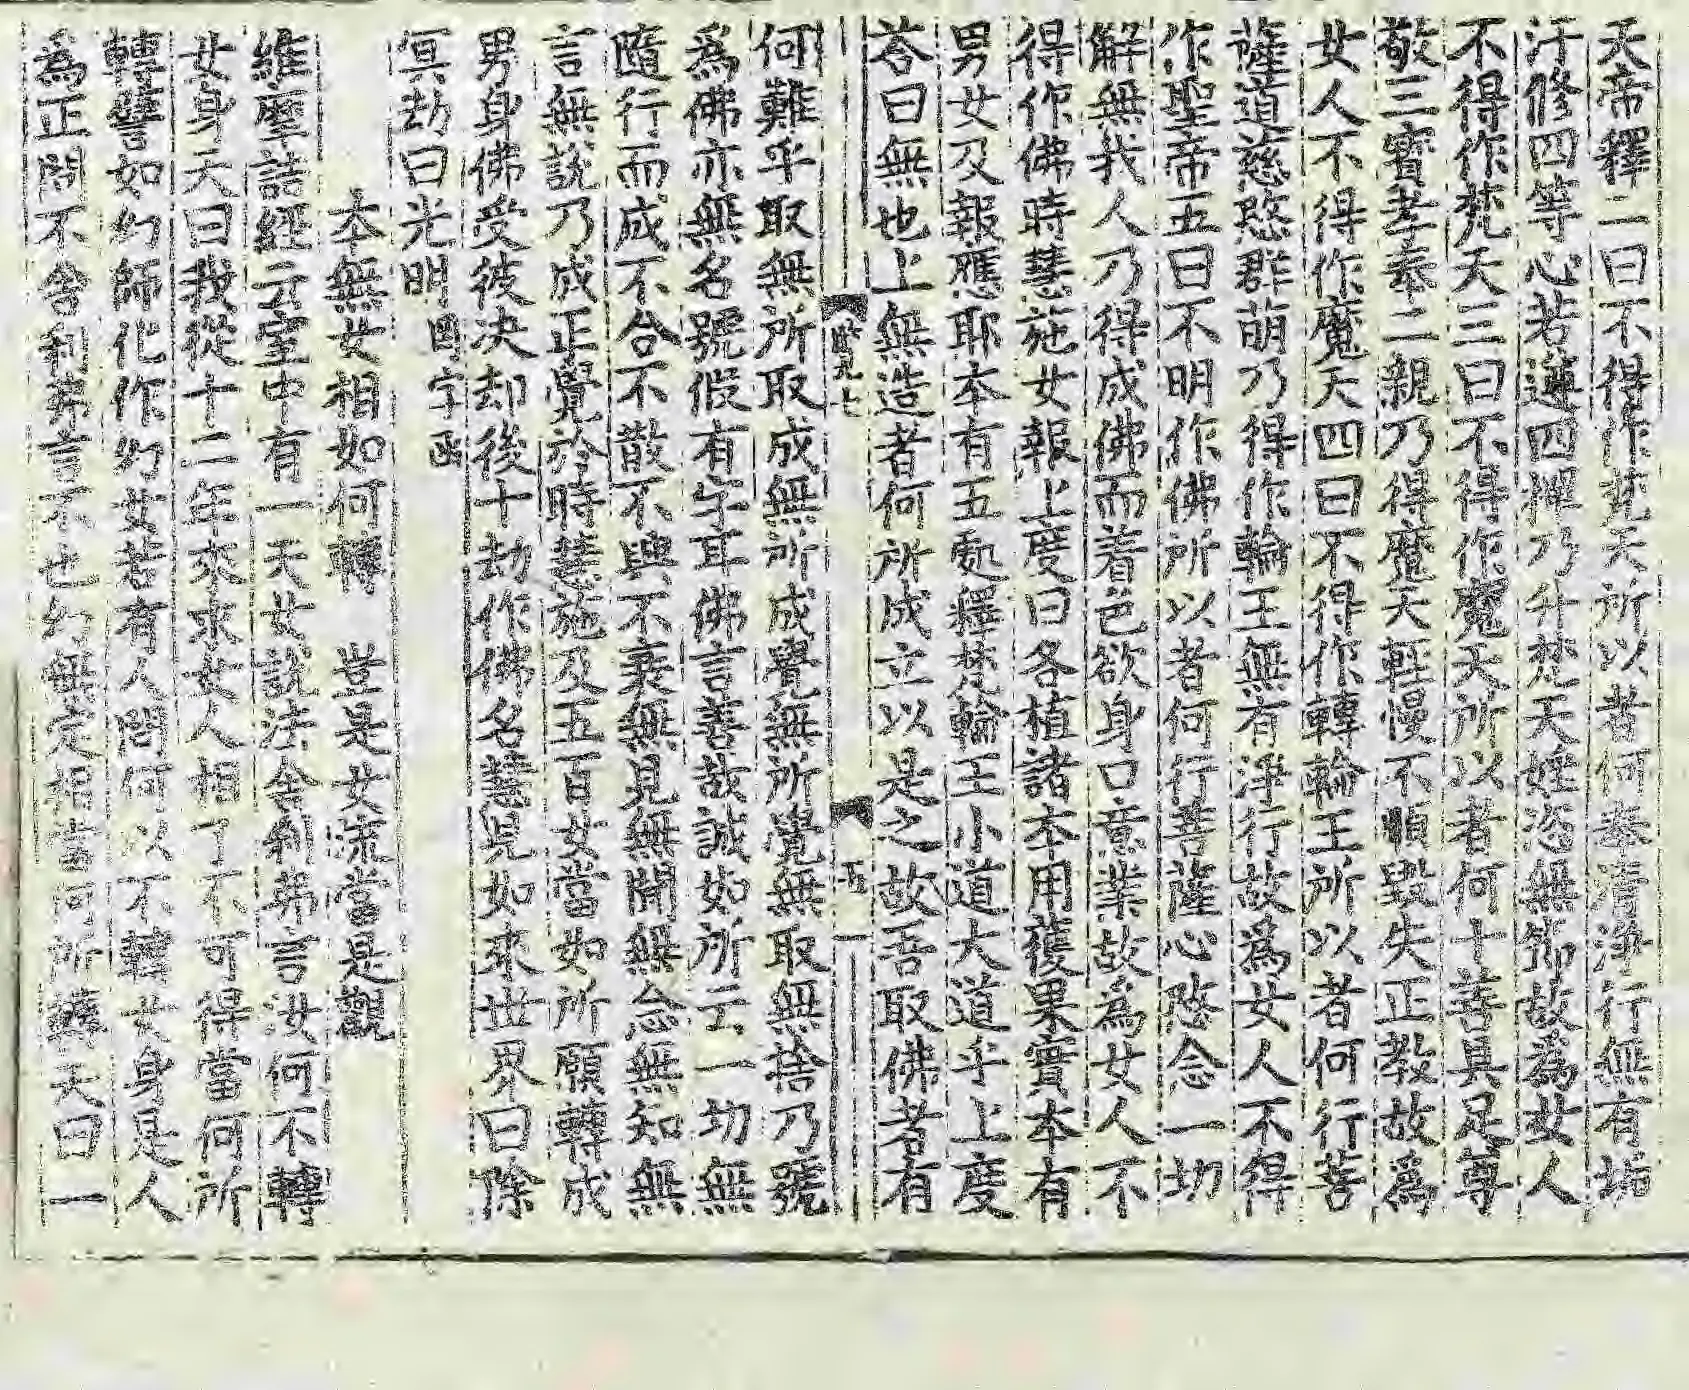 天帝釋二曰不得作梵天所以者何奉清淨行無有垢
汙修四等心若遵四禪乃升梵天婬恣無節故為女人
不得作梵天三曰不得作魔天所以者何十善具足尊
敬三寶孝奉二親乃得魔天輕慢不順毀失正教故爲
女人不得作魔天四曰不得作轉輪王所以者何行菩
薩道慈愍群萌乃得作輪王無有淨行故爲女人不得
作聖帝五曰不明作佛所以者何行菩薩心愍念一切
解無我人乃得成佛而着色欲身口意業故為女人不
得作佛時慧施女報上度曰各植諸本用獲果實本有
男女及報應耶本有五處釋梵輪王小道大道乎上度
荅曰無也上無造者何所成立以是之故吾取佛者有
五
何難乎取無所取成無所成覺無所覺無取無捨乃號
爲佛亦無名號假有字耳佛言善哉誠如所云一切無
隨行而成不合不散不興不衰無見無聞無念無知無
言無說乃成正覺於時慧施及五百女當如所願轉成
男身佛受彼决却後十劫作佛名慧見如來世界曰除
冥劫曰光明 國字函
本無女相如何轉 豈是女流當是觀
維摩詰經云室中有一天女說法舍利弗言汝何不轉
女身天曰我從十二年來求女人相了不可得當何所
轉譬如幻師化作幻女若有人問何以不轉女身是人
為正問不舍利弗言不也幻無定相當何所轉天曰一